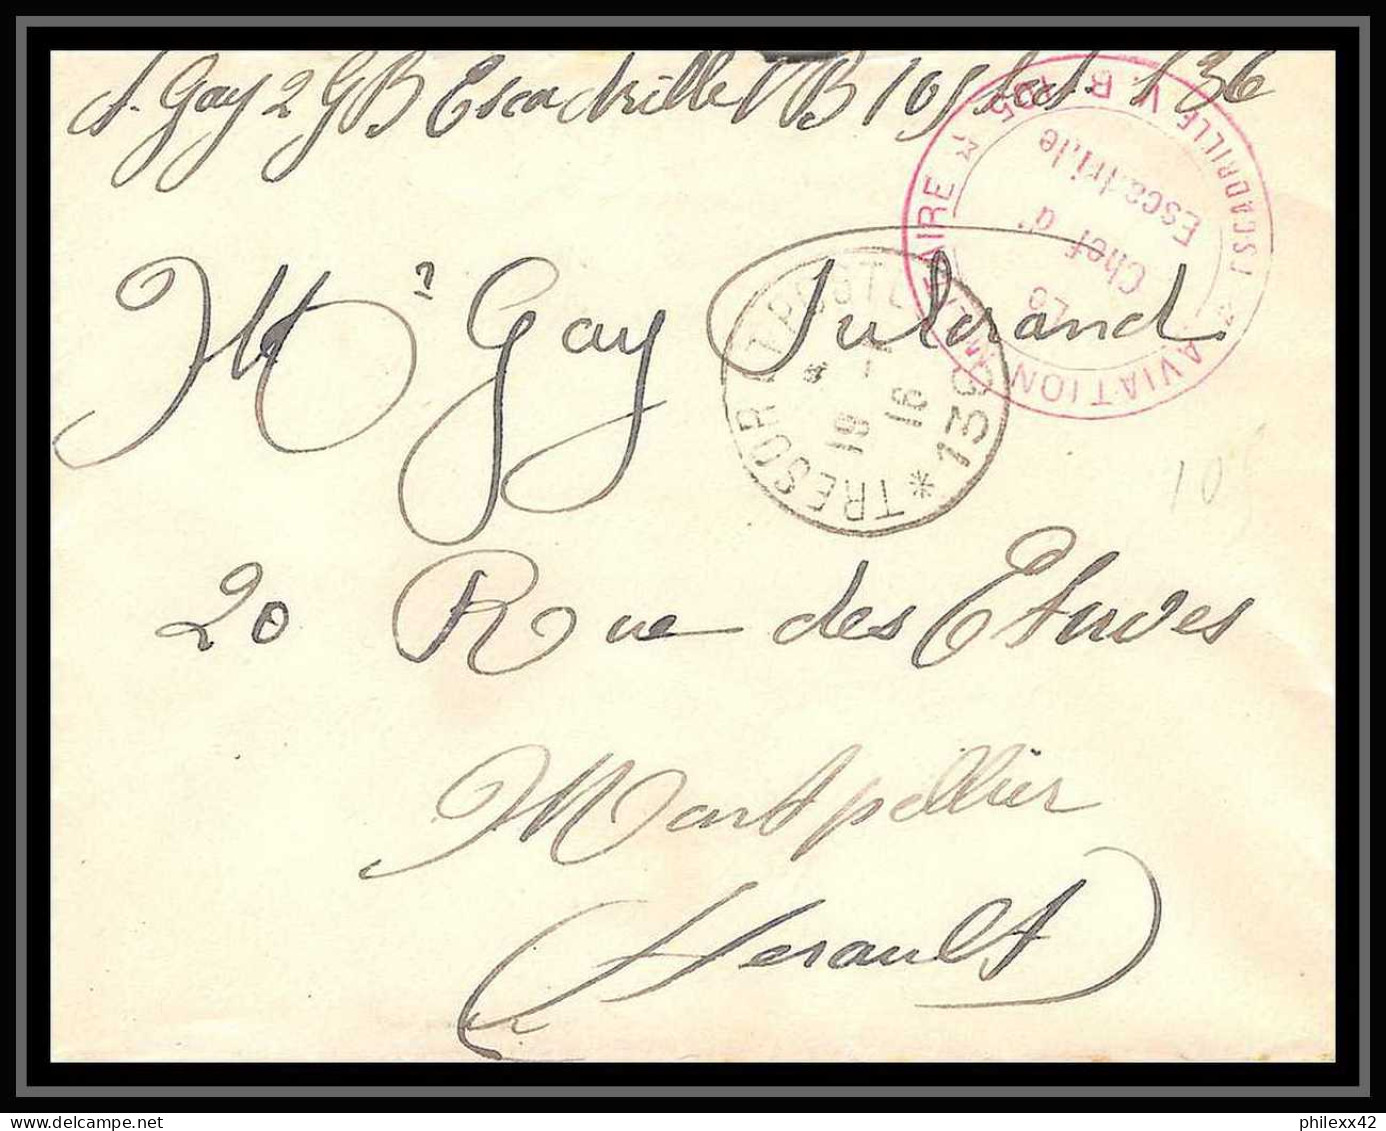 A. Gay 2 GB Escadrille VB 105 Sect. 136
AVIATION MILITAIRE * ESCADRILLE V.B. 105 *
Le
Chef d'
Escadrille
TRESOR ET POSTES * 136 *
19 - 1
16
Mr Gay
20 Rue des Etuves
Montpellier
Herault
105
philexx42